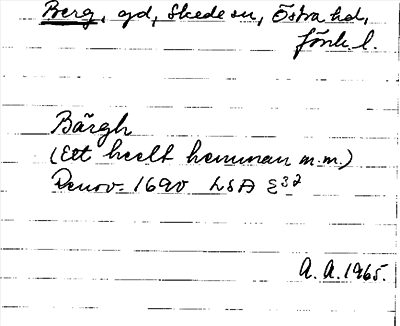 Berg, gd, Skede sn, Östra hd,
Jönk l.
Bärgh
(Ett heelt hemman m.m.)
Renov. 1690 LSA E32
A. A. 1965.